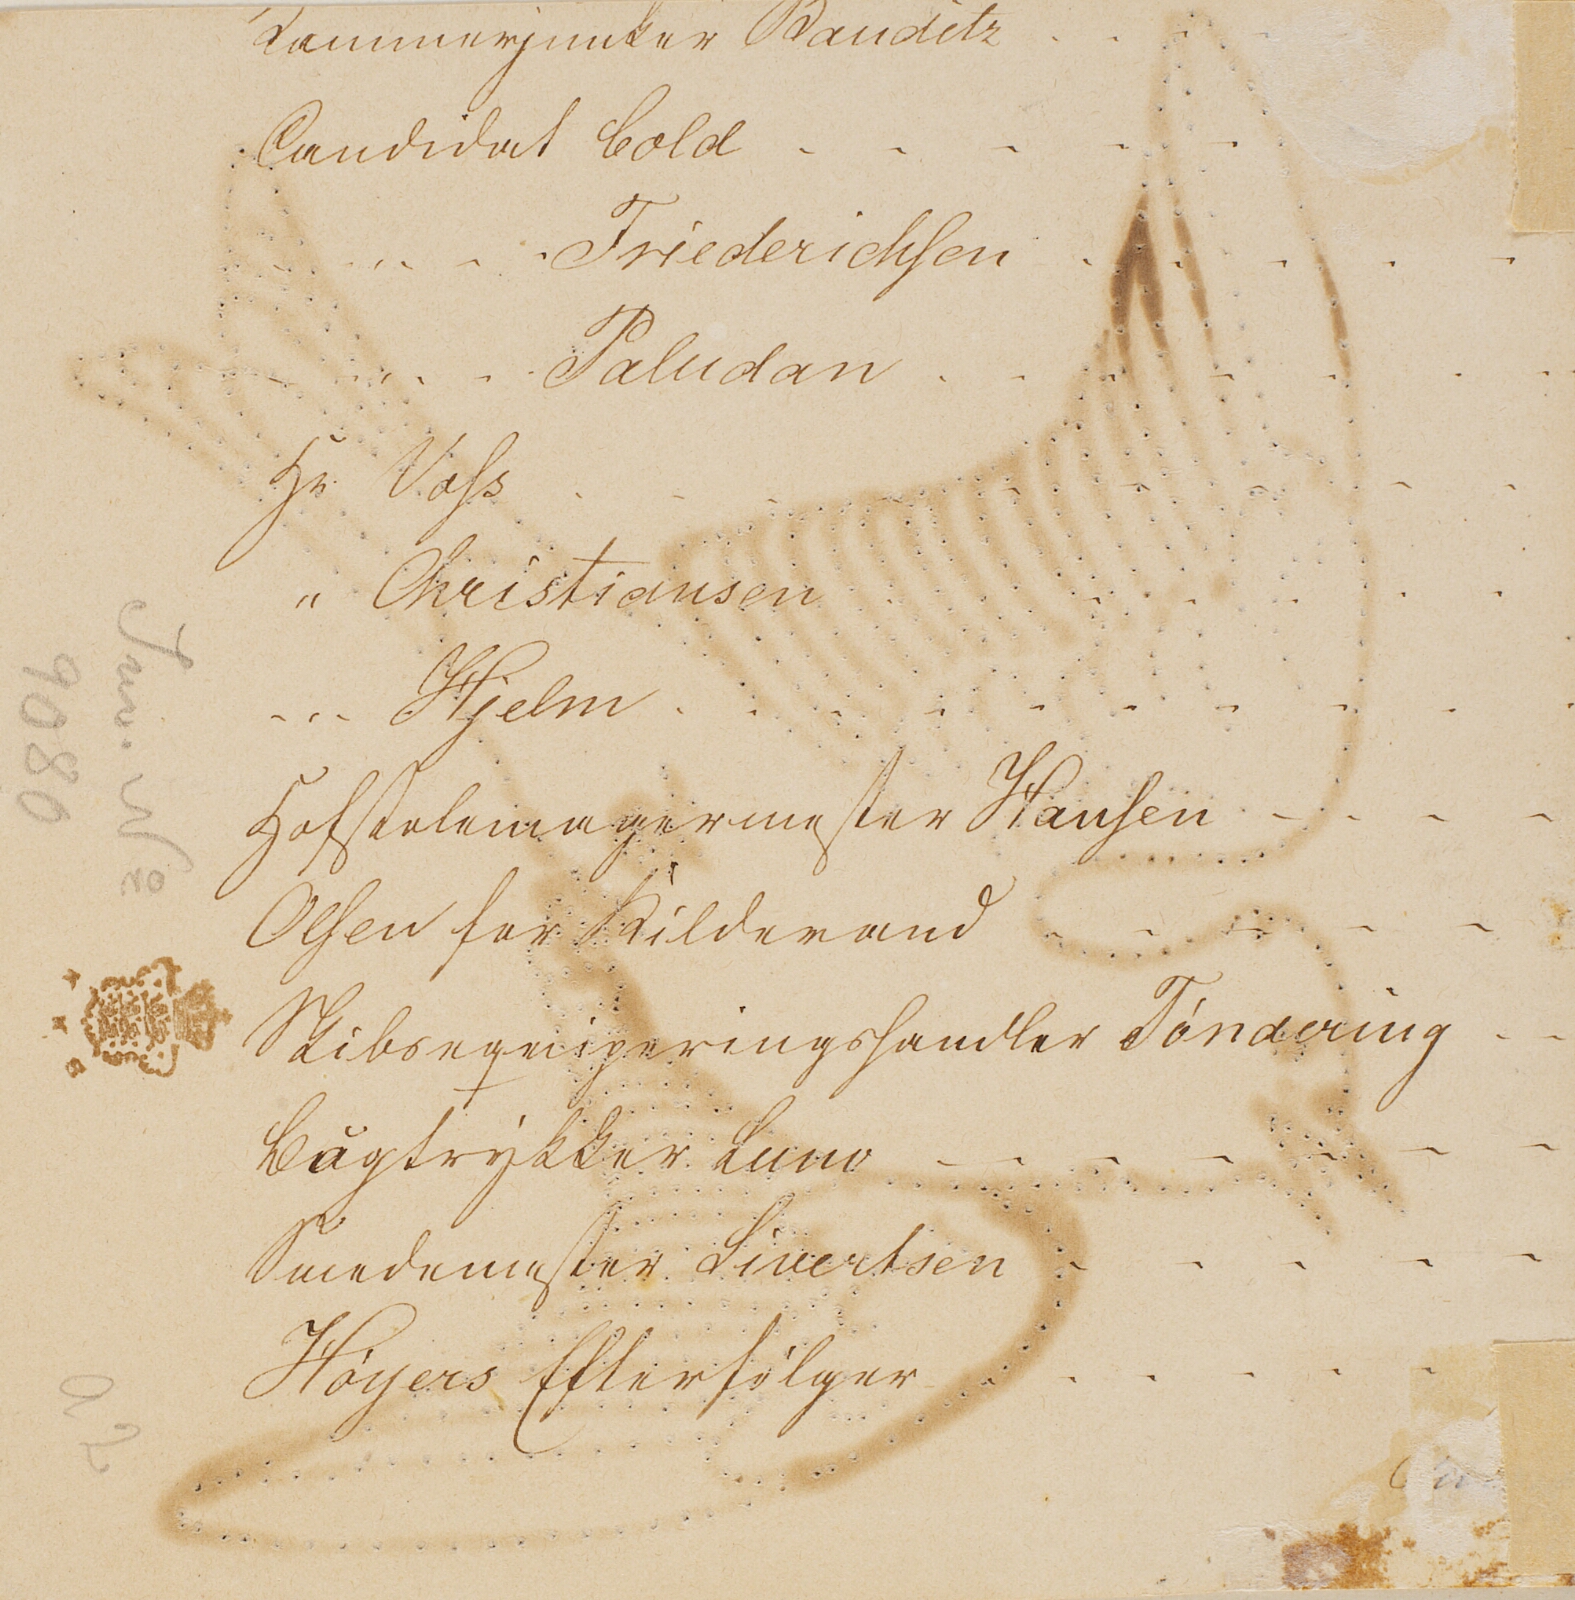 Kammerjunker Bauditz
Candidat Bold
" Friederichsen
" Paludan
Hr Voss
" Christiansen
" Hjelm
Hofstolemagermester Hansen
Olsen for Kildevand
Skibsequiperingshandler Töndering
Bugtrykker Luno
Smedemester Sivertsen
Höyers Efterfölger
Inv. No
9086
a2